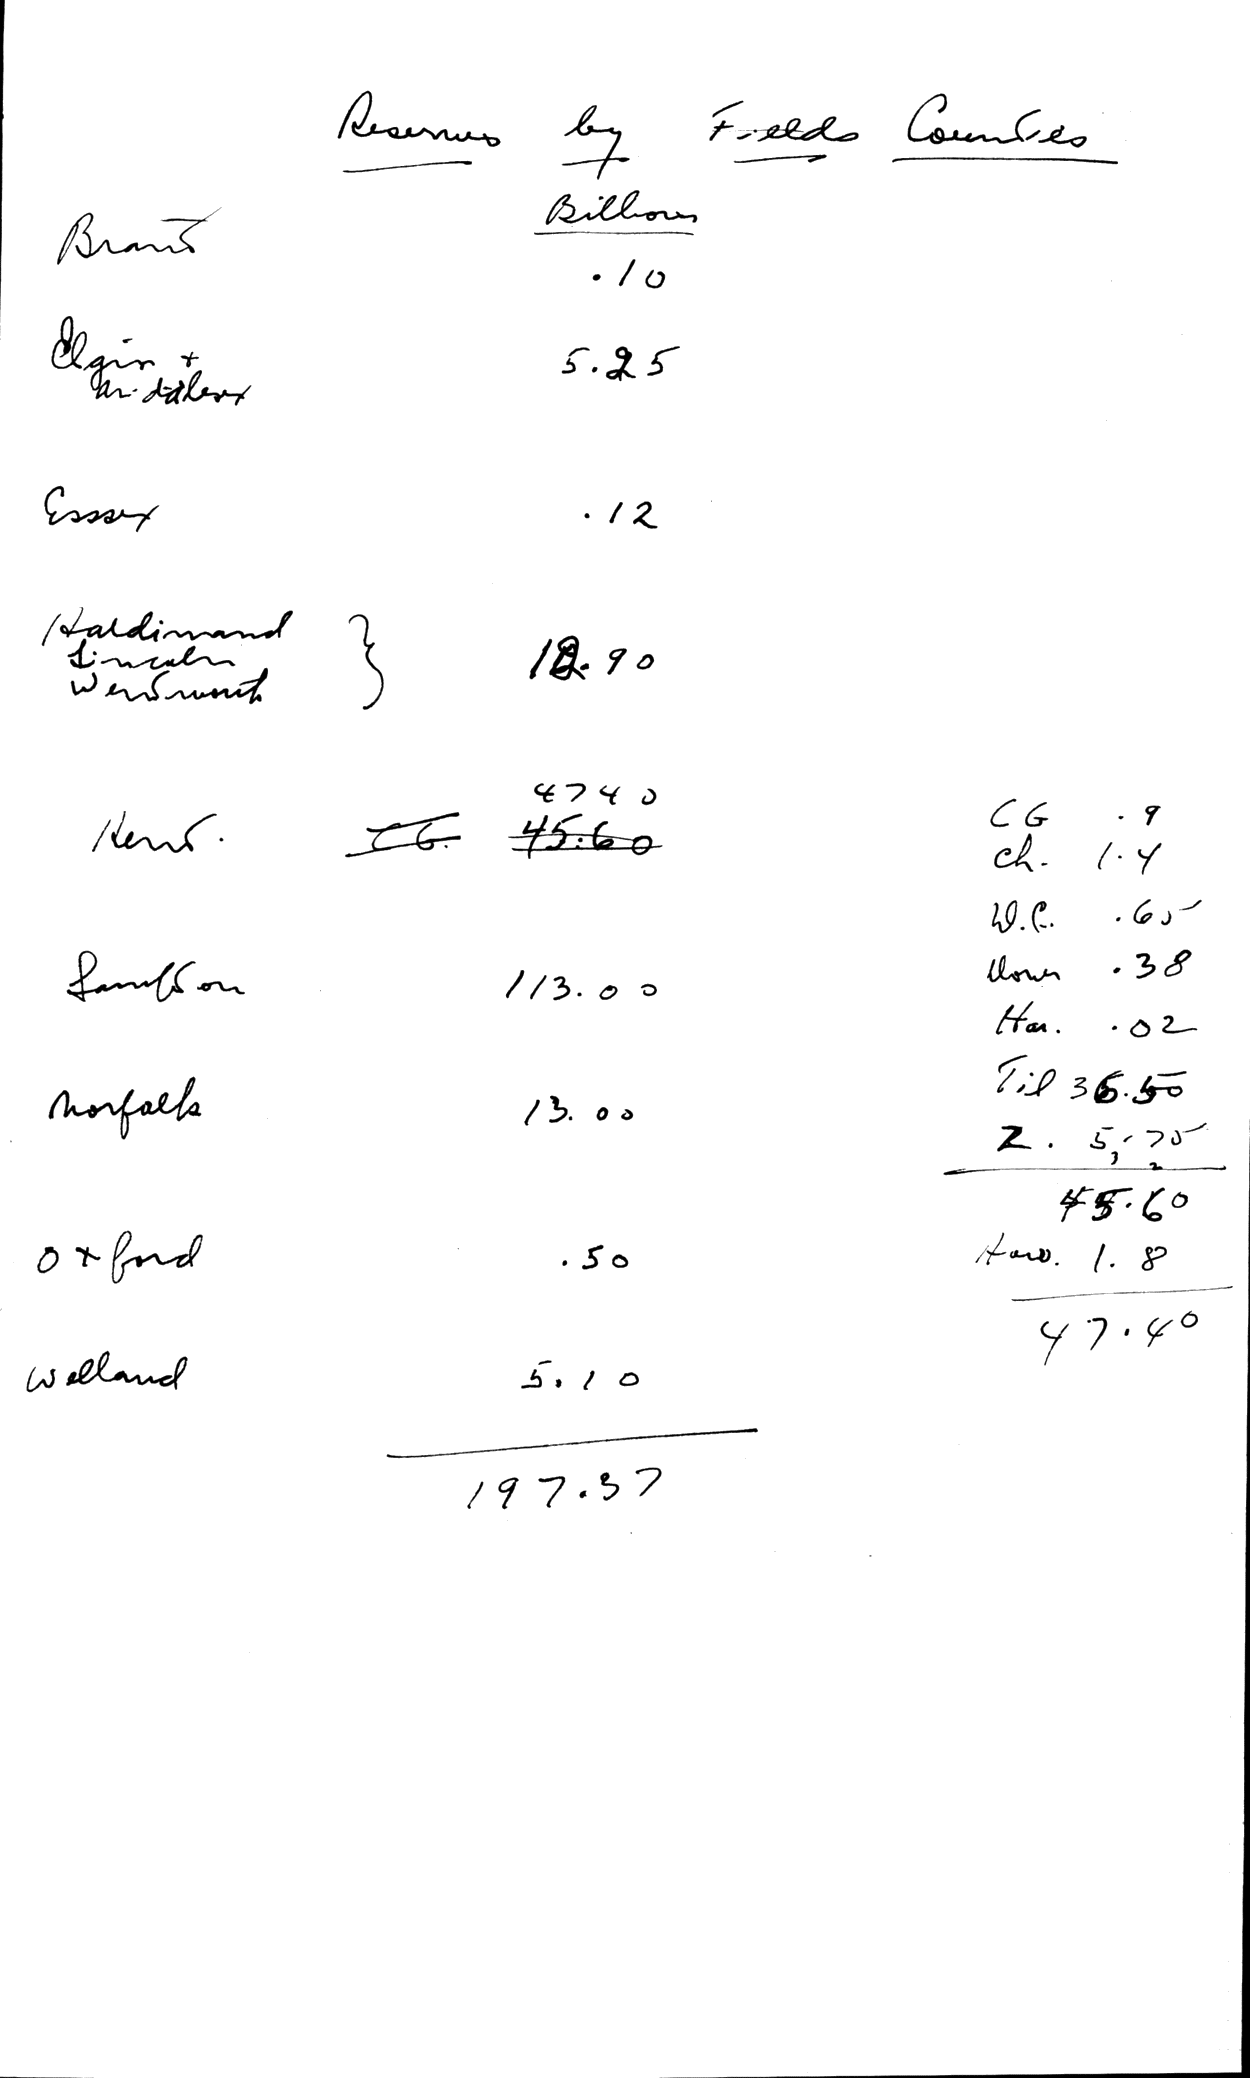 Reserves by Fields Counties
Billions
Brant
.10
Elgin + 5.25
Middlesex
Essex .12
Haldimand
Lincoln } 12.90
Wentworth
4740
Kent. CG. 45.60
Lambton 113.00
Norfolk 13.00
Oxford .50
Welland 5.10
197.37
CG .9
Ch. 1.4
W.C. .65
Dover .38
Har. .02
Til 36.50
Z. 5.75
45.60
How. 1.8
47.40